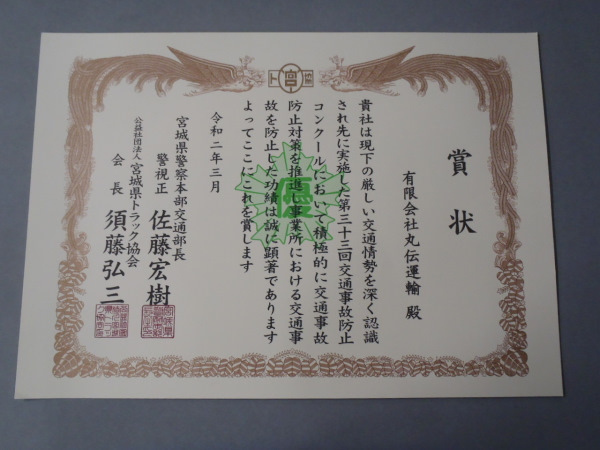 賞状
有限会社丸伝運輸 殿
貴社は現下の厳しい交通情勢を深く認識
され先に実施した第三十三回交通事故防止
コンクールにおいて積極的に交通事故
防止対策を推進し事業所における交通事
故を防止した功績は誠に顕著であります
よってここにこれを賞します
令和二年三月
宮城県警察本部交通部長
警視正 佐藤宏樹
公益社団法人 宮城県トラック協会
会長 須藤弘三
優
ト宮協